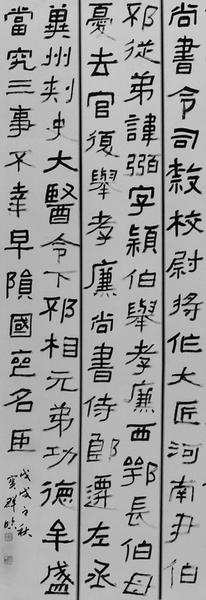 尚書令司隸校尉將作大匠河南尹伯
邳從弟諱弼字穎伯舉孝廉西鄂長伯母
憂去官復舉孝廉尚書侍郎遷左丞
冀州刺史大醫令下邳相元弟功德牟盛
當究三事不幸早隕國喪名臣
戊戌秋
群臨